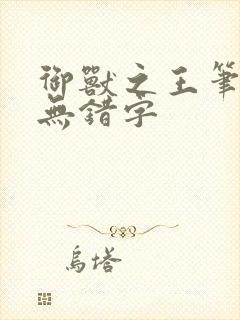 御獸之王筆
無錯字
烏塔